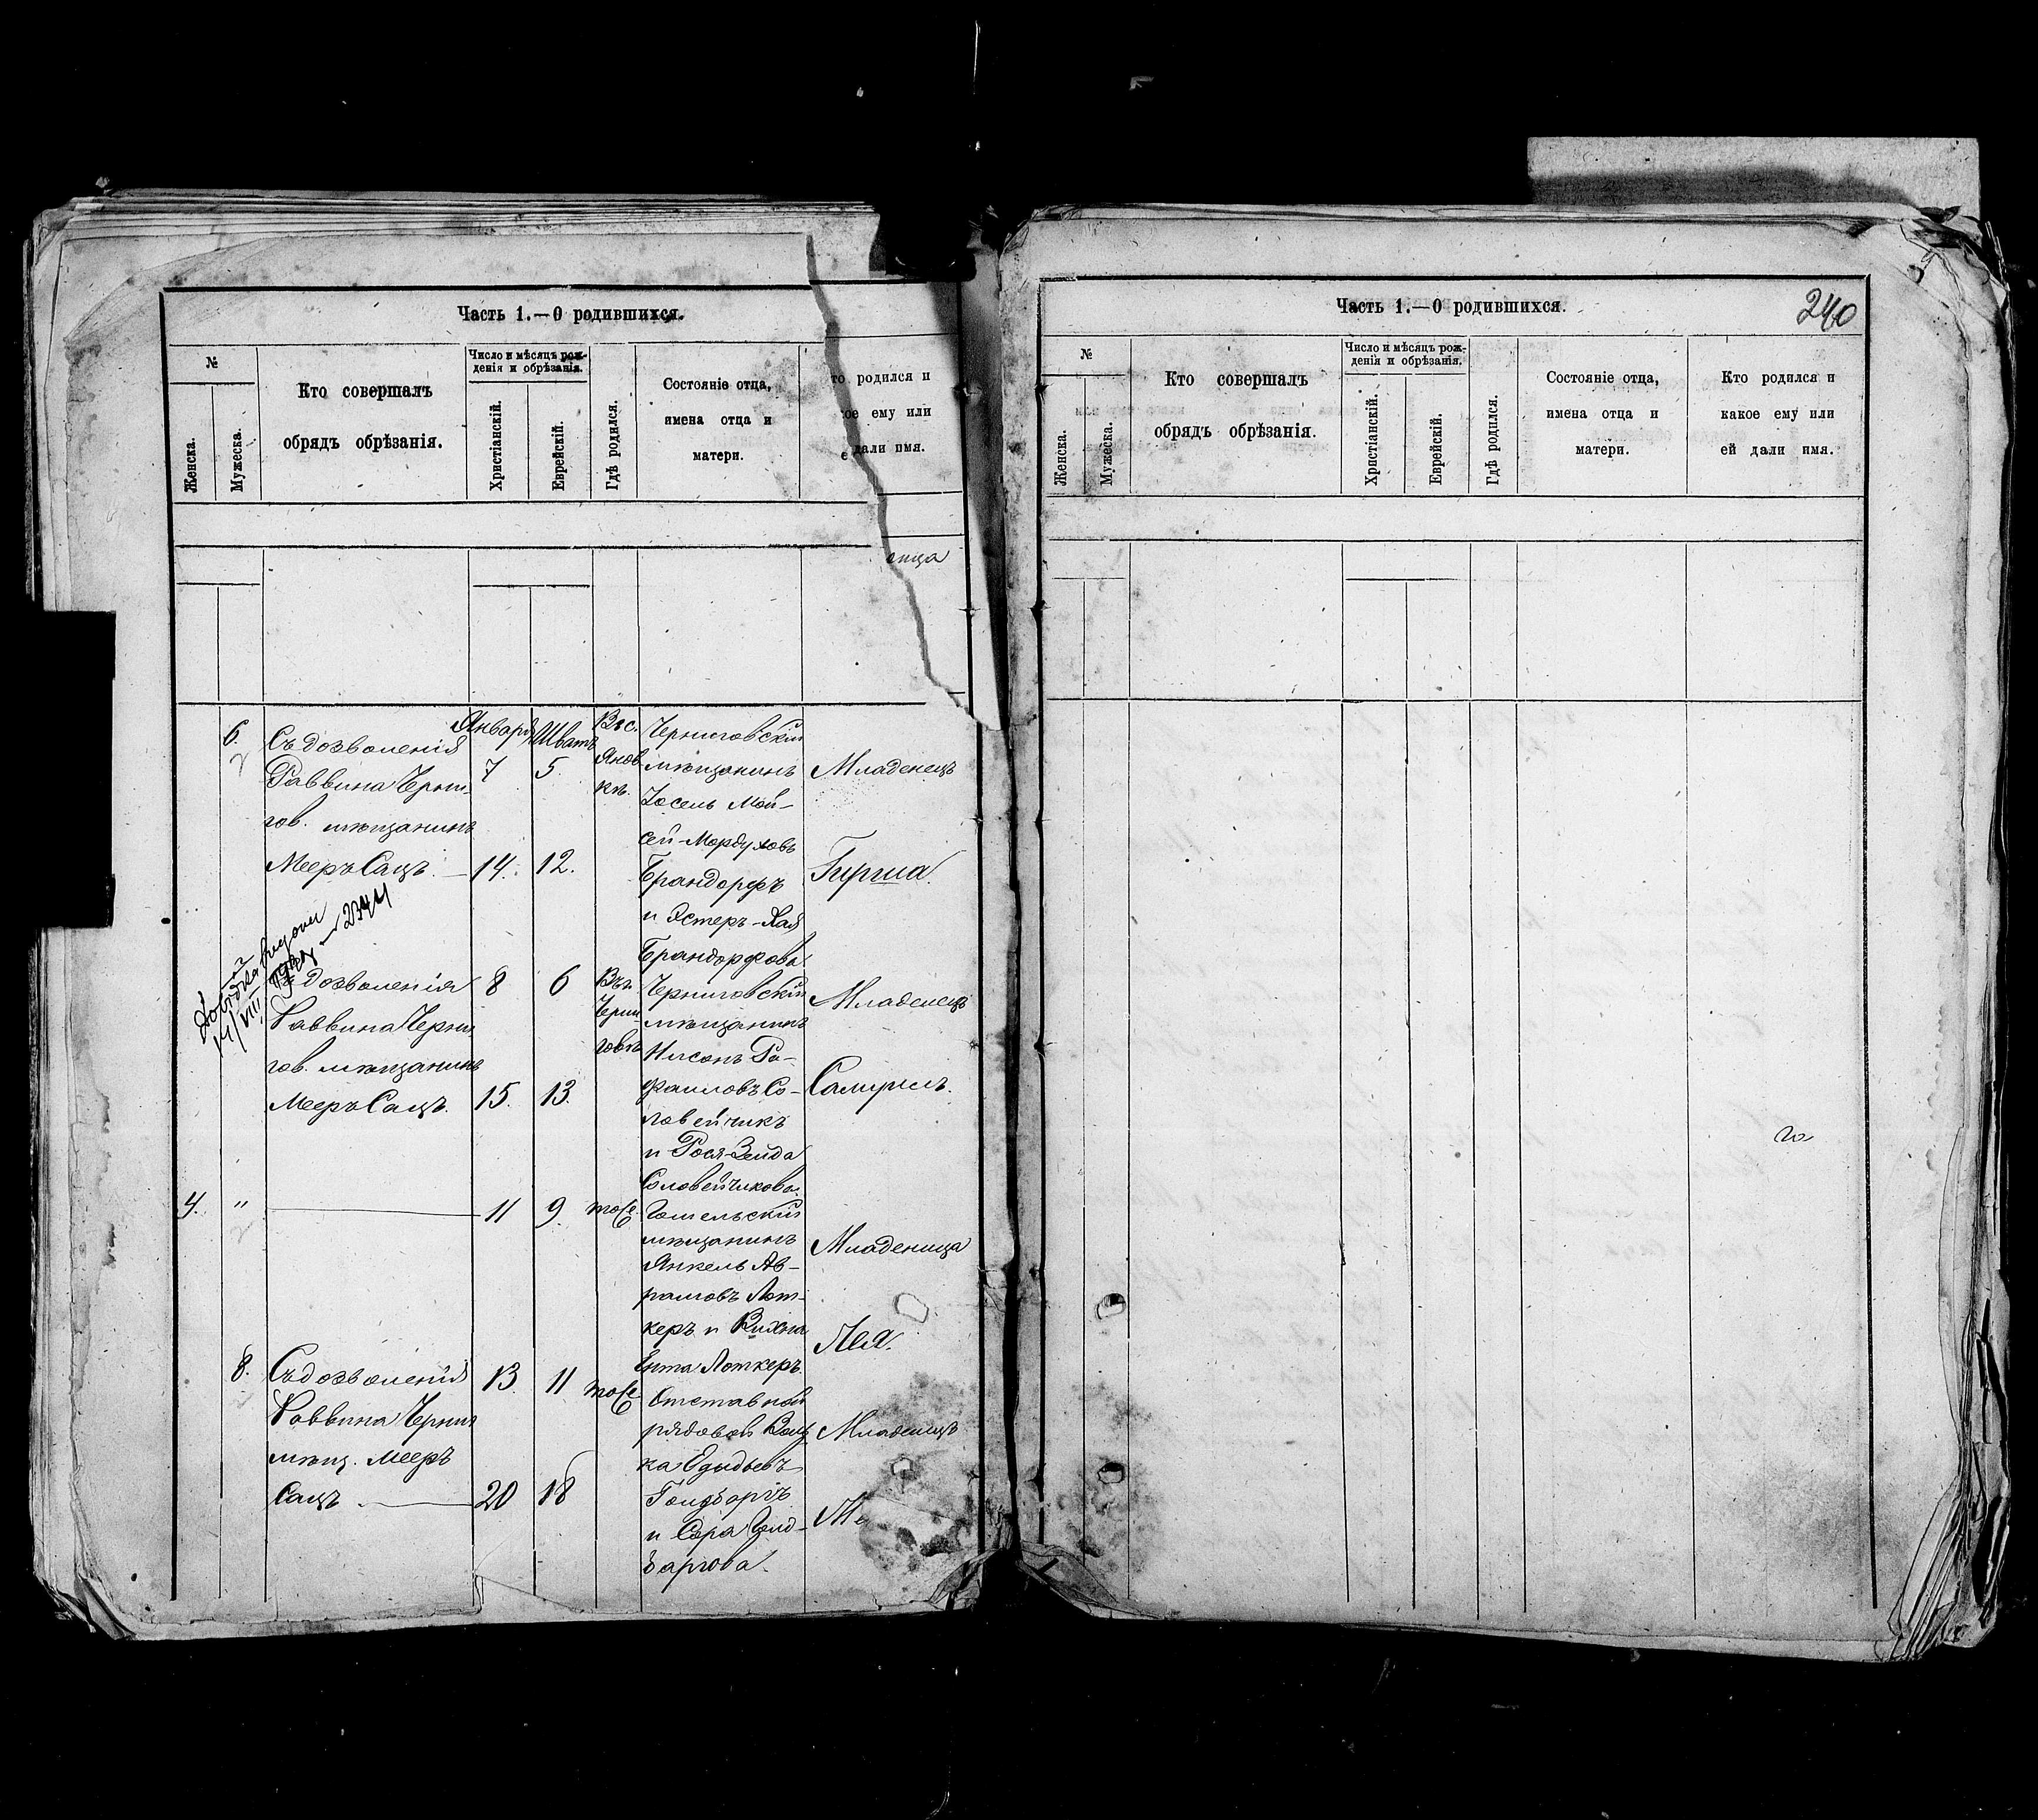 Часть 1.—О родившихся.
№
Кто совершалъ
обрядъ обрѣзанія.
Число и мѣсяцъ рож-
денія и обрѣзанія.
Женска.
Мужеска.
Христіанскій.
Еврейскій.
Гдѣ родился.
Состояніе отца,
имена отца и
матери.
то родился и
ое ему или
дали имя.
6.
Съ дозволенія
Раввина Черни-
гов. мѣщанинъ
Мееръ Сацъ.
Января
7
14.
Шватъ
5.
12.
Въ с.
Янов
кѣ.
Черниговскій
мѣщанинъ
Іосель Мой-
сей-Мордуховъ
Брандорфъ
и Эстеръ-Хая
Брандорфова.
Младенецъ
Гирша.
14/VIII
2344
дозволенія
Раввина Черни
гов. мѣщанинъ
Мееръ Сацъ.
8
15.
6
13.
Въ г.
Черни-
говѣ
Черниговскій
мѣщанинъ
Нисонъ Ра-
фаиловъ Со-
ловейчикъ
и Рося-Зелда
Соловейчикова.
Младенецъ
Самуилъ.
4.
"
11
9
тоже
Гомельскій
мѣщанинъ
Янкель Ав-
рамовъ Лот-
керъ и Вихна
Ента Лоткеръ.
Младеница
Лея.
8.
Съ дозволенія
Раввина Черниг
мѣщ. Мееръ
Сацъ
13.
20
11
18
тоже
Отставной
рядовой
Гольдбаргъ
и Сора Голд-
баргова.
Младенецъ
Ме
Часть 1.—О родившихся.
240
№
Кто совершалъ
обрядъ обрѣзанія.
Число и мѣсяцъ рож-
денія и обрѣзанія.
Женска.
Мужеска.
Христіанскій.
Еврейскій.
Гдѣ родился.
Состояніе отца,
имена отца и
матери.
Кто родился и
какое ему или
ей дали имя.